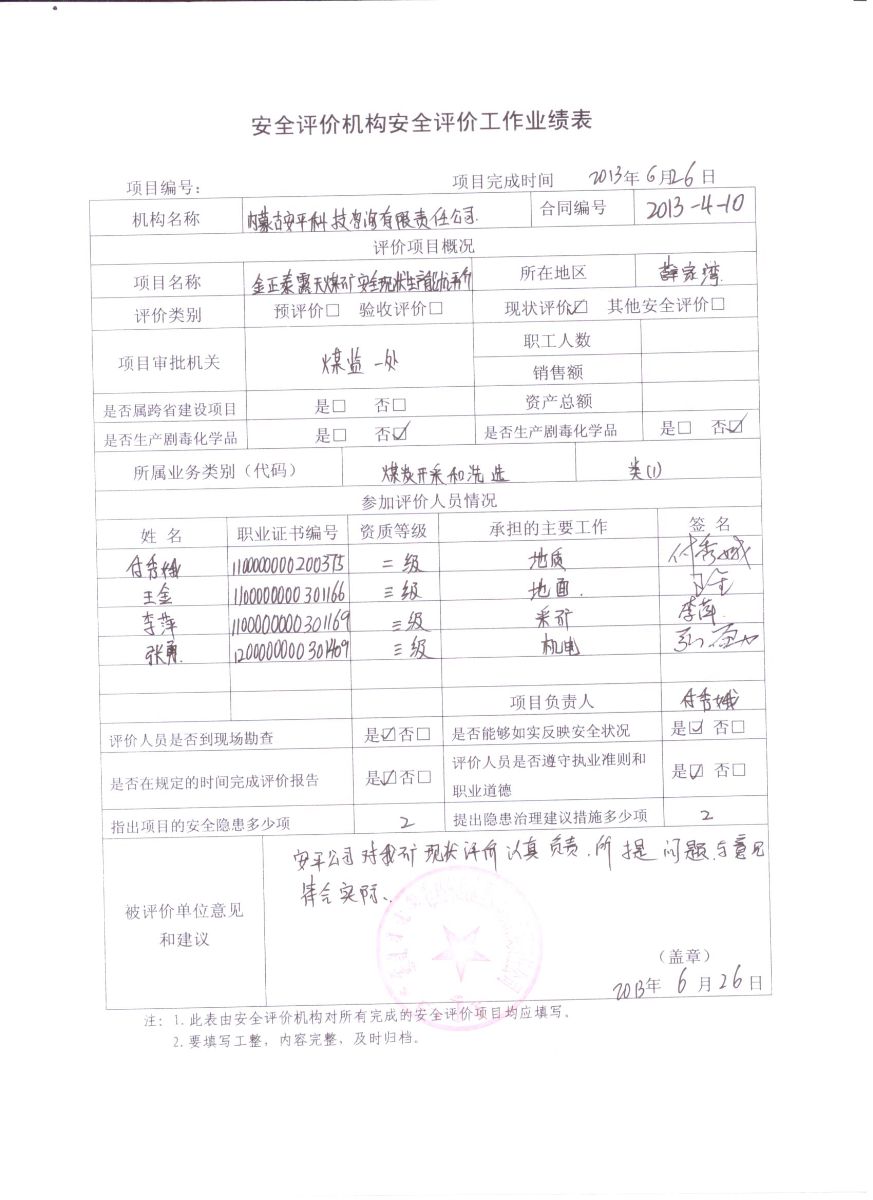 安全评价机构安全评价工作业绩表
项目编号： 项目完成时间 2013年6月26日
机构名称 内蒙古安平科技咨询有限责任公司 合同编号 2013-4-10
评价项目概况
项目名称 金正泰露天煤矿安全现状生产能力评价 所在地区 薛家湾
评价类别 预评价□ 验收评价□ 现状评价☑ 其他安全评价□
项目审批机关 煤监一处 职工人数
销售额
是否属跨省建设项目 是□ 否□ 资产总额
是否生产剧毒化学品 是□ 否☑ 是否生产剧毒化学品 是□ 否☑
所属业务类别（代码） 煤炭开采和洗选 类(1)
参加评价人员情况
姓 名 职业证书编号 资质等级 承担的主要工作 签 名
付秀娥 1100000000200375 二级 地质 付秀娥
王金 1100000000301166 三级 地面 王金
李萍 1100000000301169 三级 采矿 李萍
张勇 1200000000301409 三级 机电
项目负责人 付秀娥
评价人员是否到现场勘查 是☑否□ 是否能够如实反映安全状况 是☑ 否□
是否在规定的时间完成评价报告 是☑否□ 评价人员是否遵守执业准则和
职业道德 是☑ 否□
指出项目的安全隐患多少项 2 提出隐患治理建议措施多少项 2
被评价单位意见
和建议
安平公司对我矿现状评价认真负责,所提问题与意见
符合实际、
（盖章）
2013年 6月26日
注：1.此表由安全评价机构对所有完成的安全评价项目均应填写。
2.要填写工整，内容完整，及时归档。